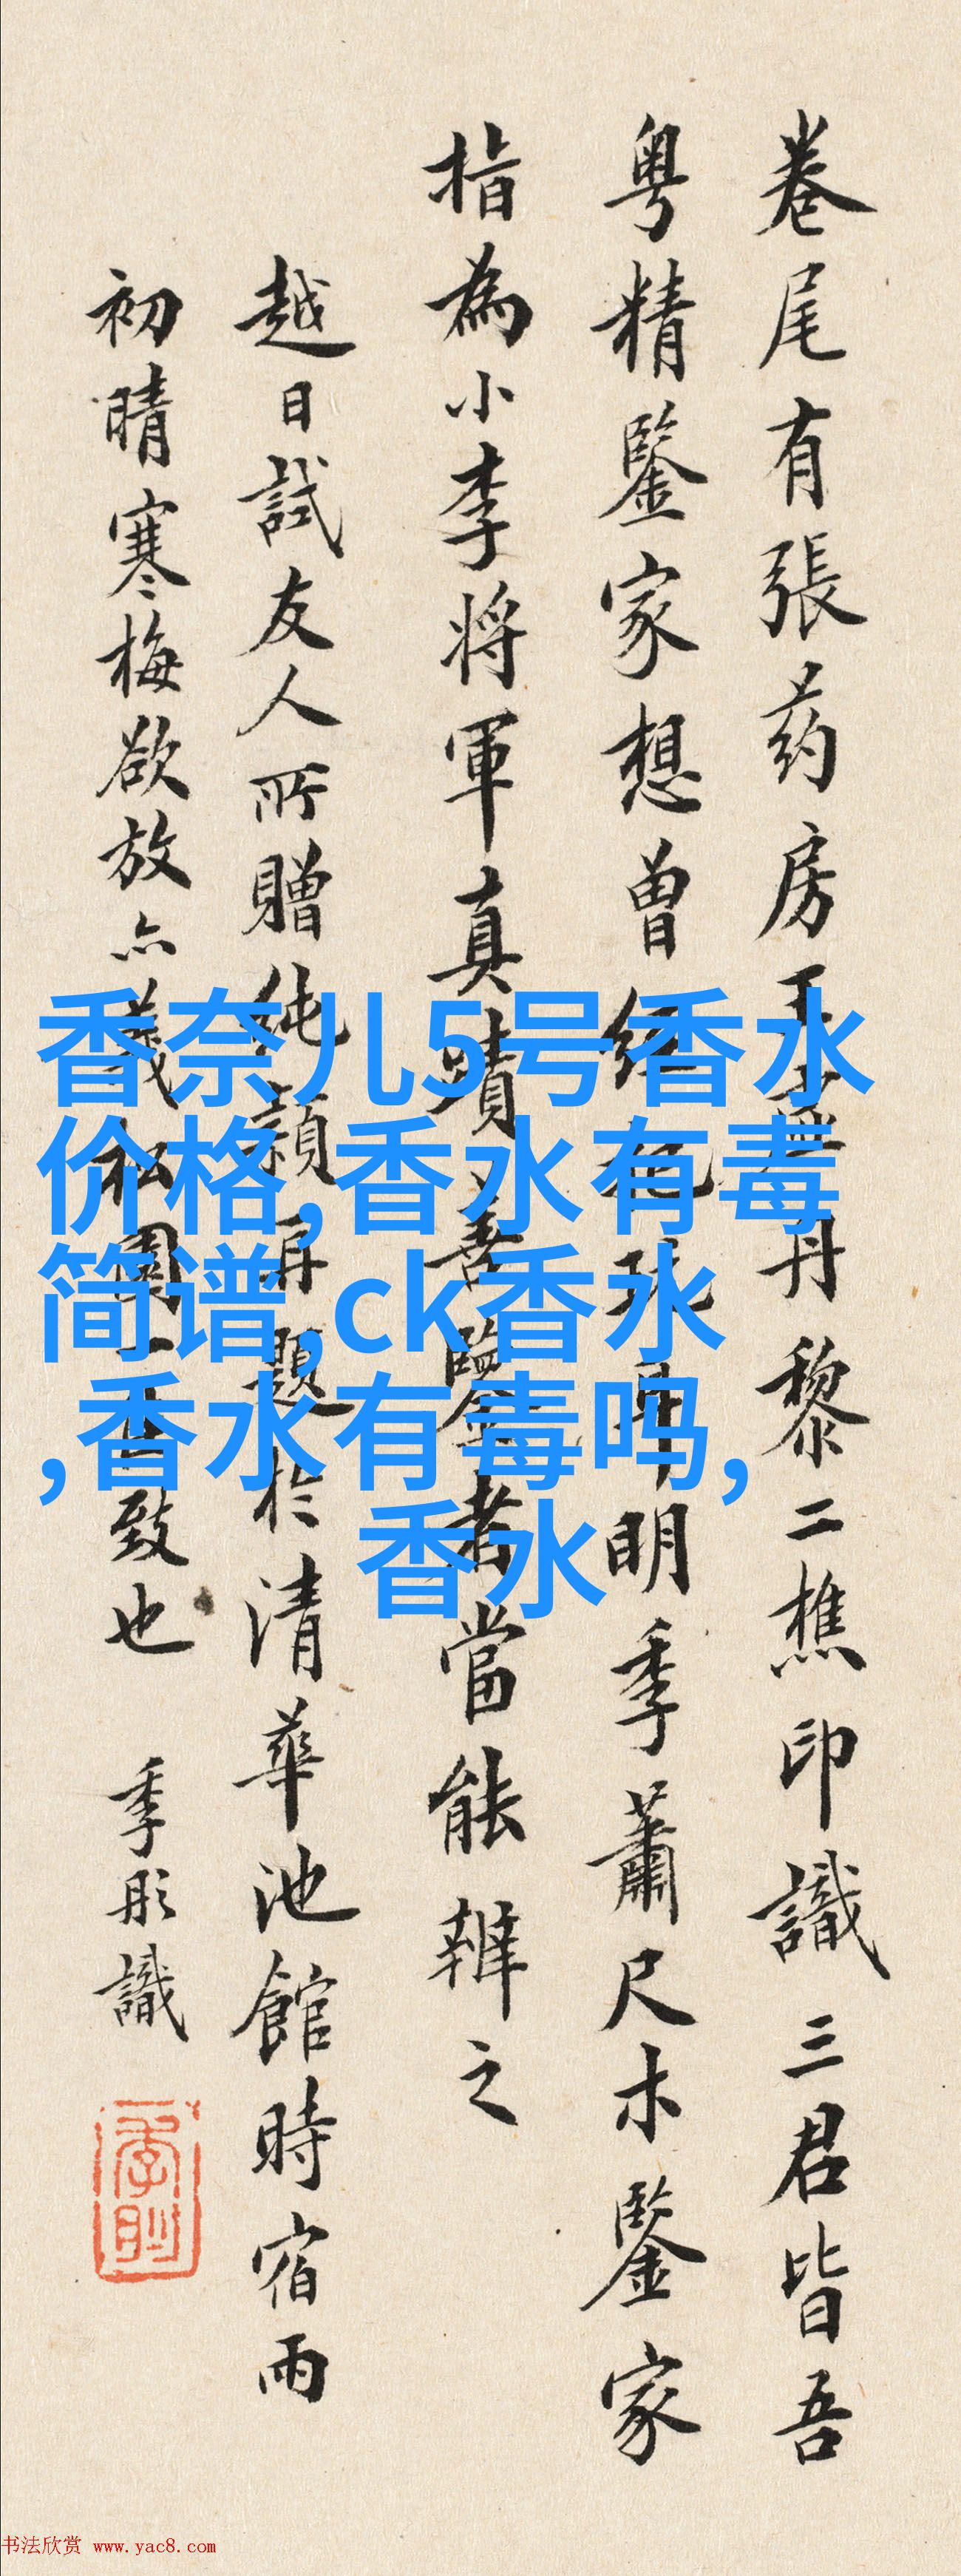 卷尾有張药房王丹黎二樵印識三君皆吾
粤精鑒家想曾經明季蕭尺木鑒家
指為小李将軍真蹟善鑒者當能辨之
越日試友人所贈純穎再題於清華池館時宿雨
初晴寒梅欲放亦園一致也 季彤識
香奈儿5号香水
价格,香水有毒
简谱,ck香水
,香水有毒吗,
香水
书法欣赏 www.yac8.com